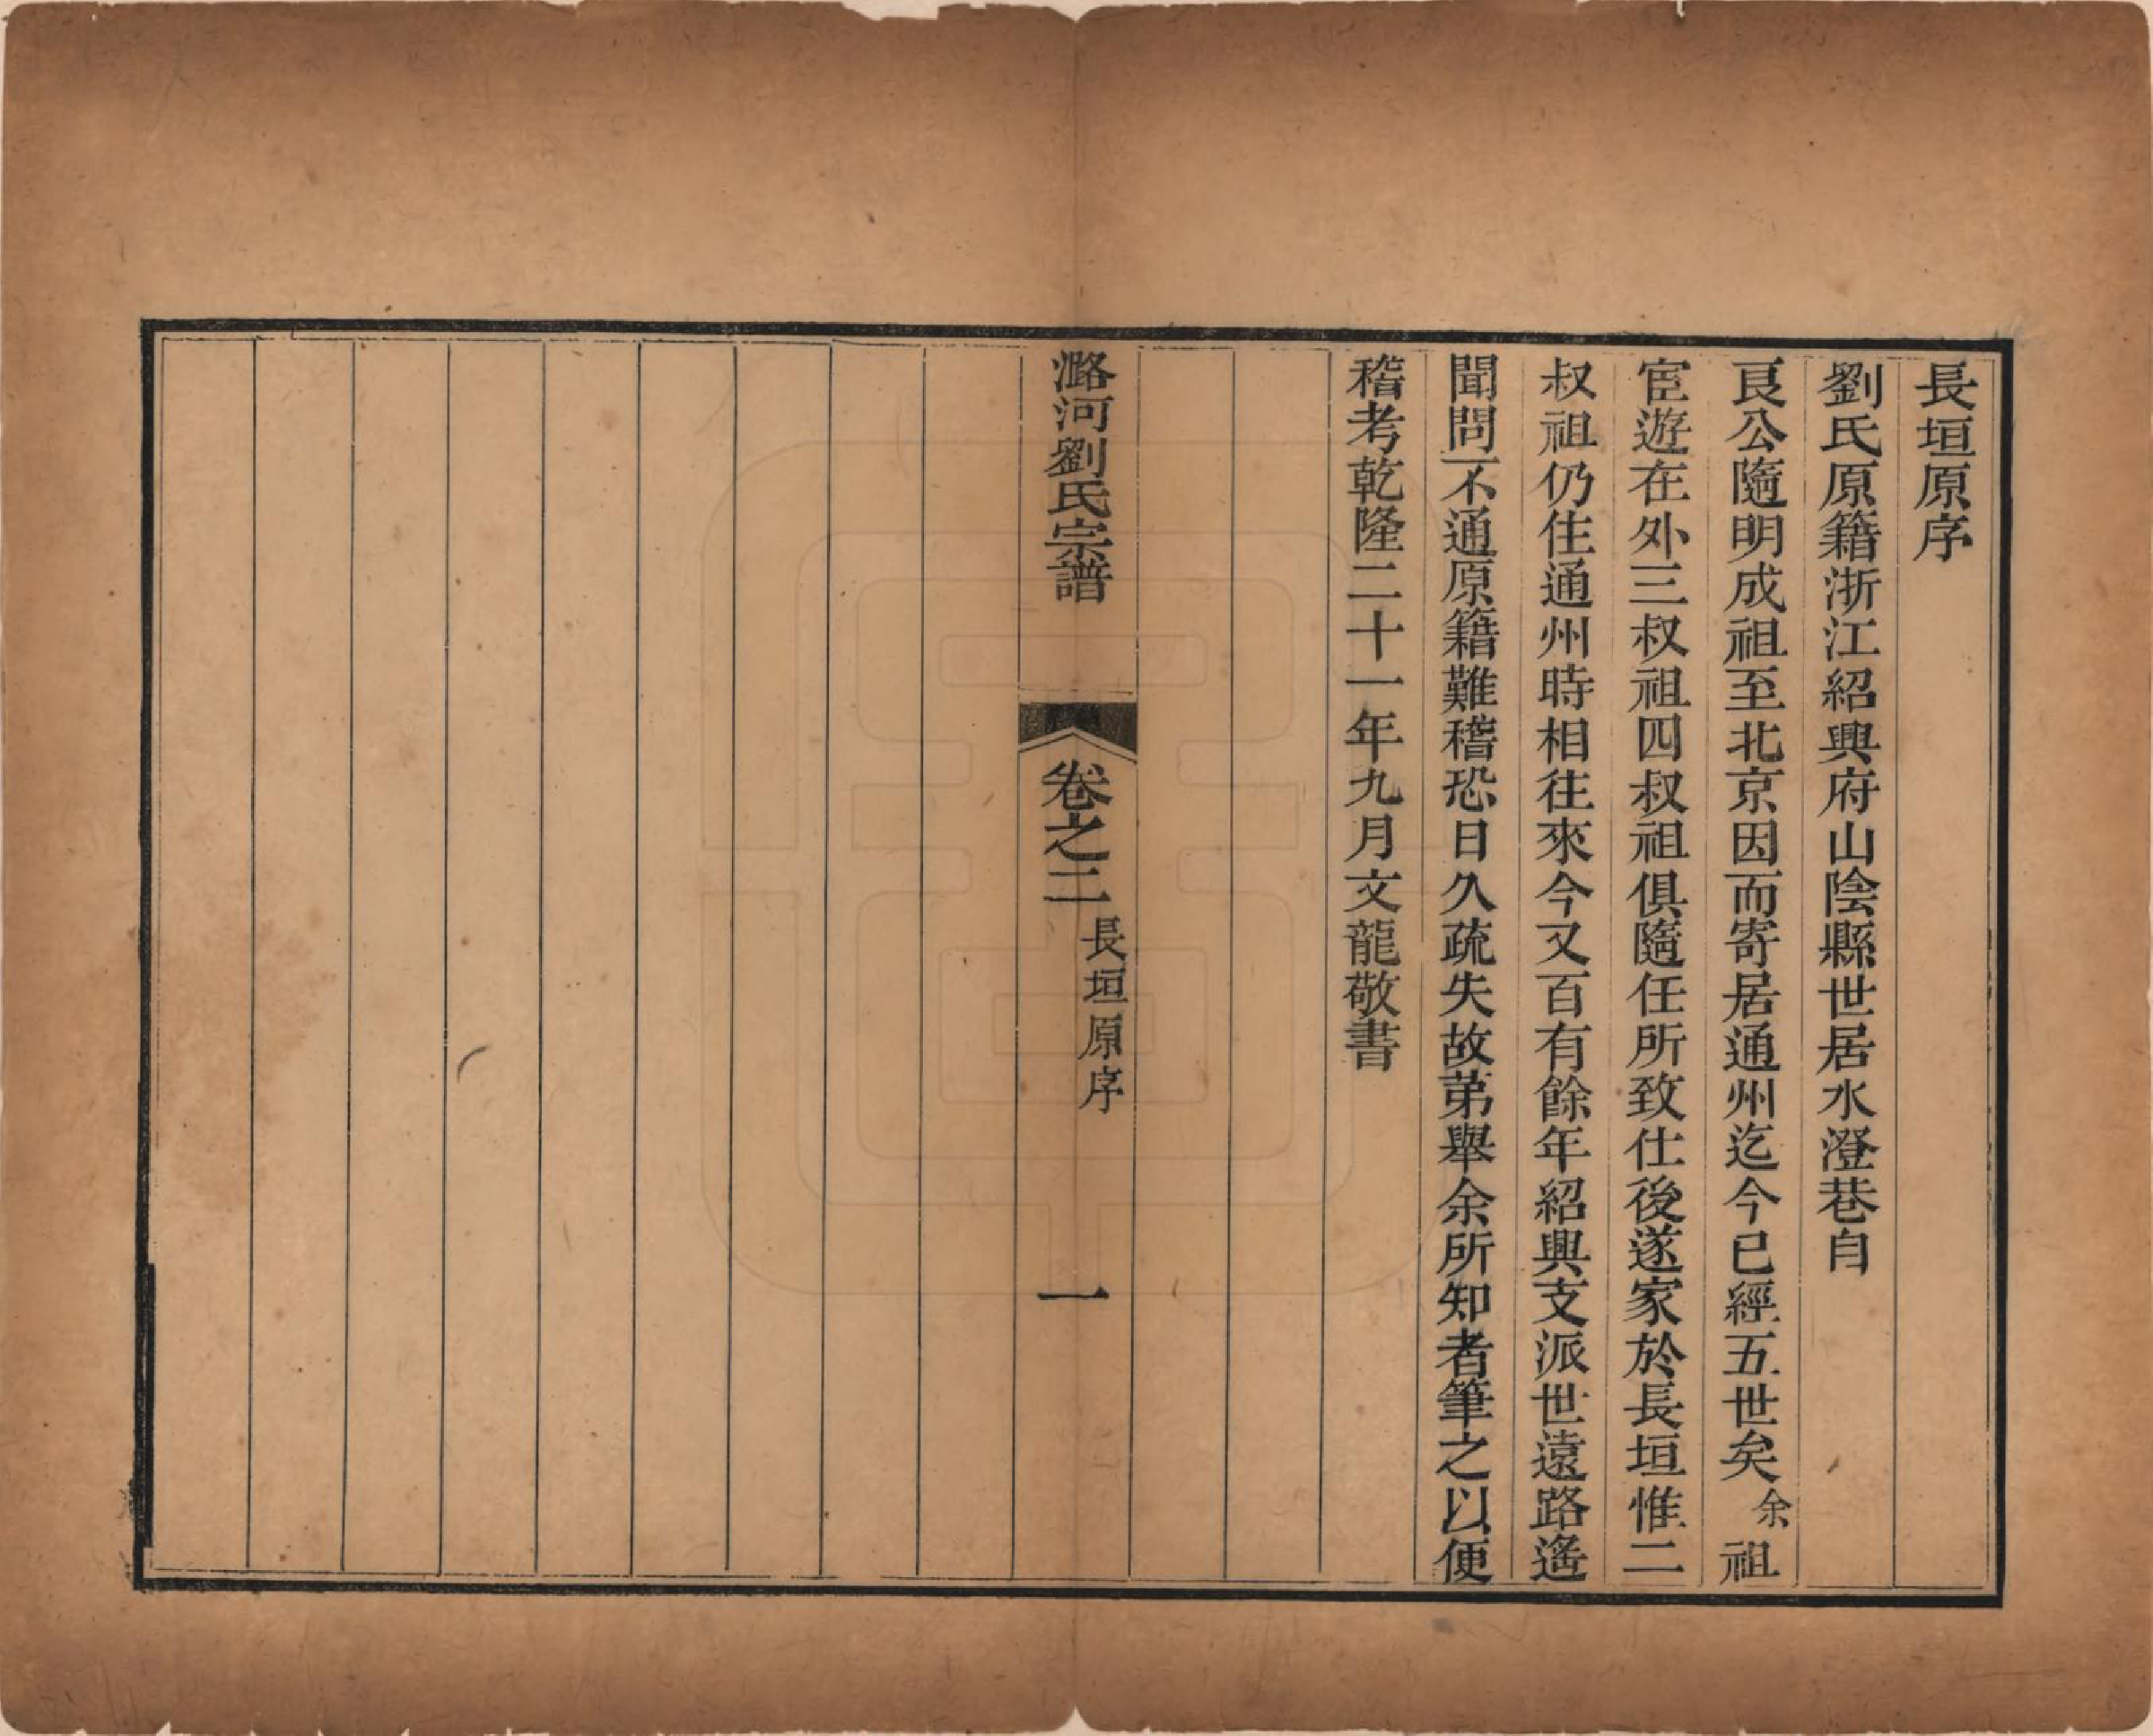 長垣原序
劉氏原籍浙江紹興府山陰縣世居水澄巷自
良公隨明成祖至北京因而寄居通州迄今已經五世矣余祖
宦遊在外三叔祖四叔祖俱隨任所致仕後遂家於長垣惟二
叔祖仍住通州時相往來今又百有餘年紹興支派世遠路遙
聞問不通原籍難稽恐日久疏失故第舉余所知者筆之以便
稽考乾隆二十一年九月文龍敬書
潞河劉氏宗譜
卷之二
長垣原序
一